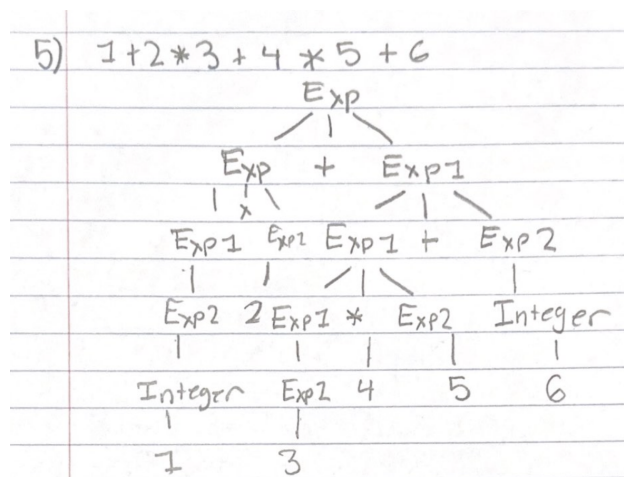 5) 1+2*3+4*5+6
Exp
Exp + Exp1
x
Exp1 Exp2 Exp1 + Exp2
Exp2 2 Exp1 * Exp2 Integer
Integer Exp2 4 5 6
1 3